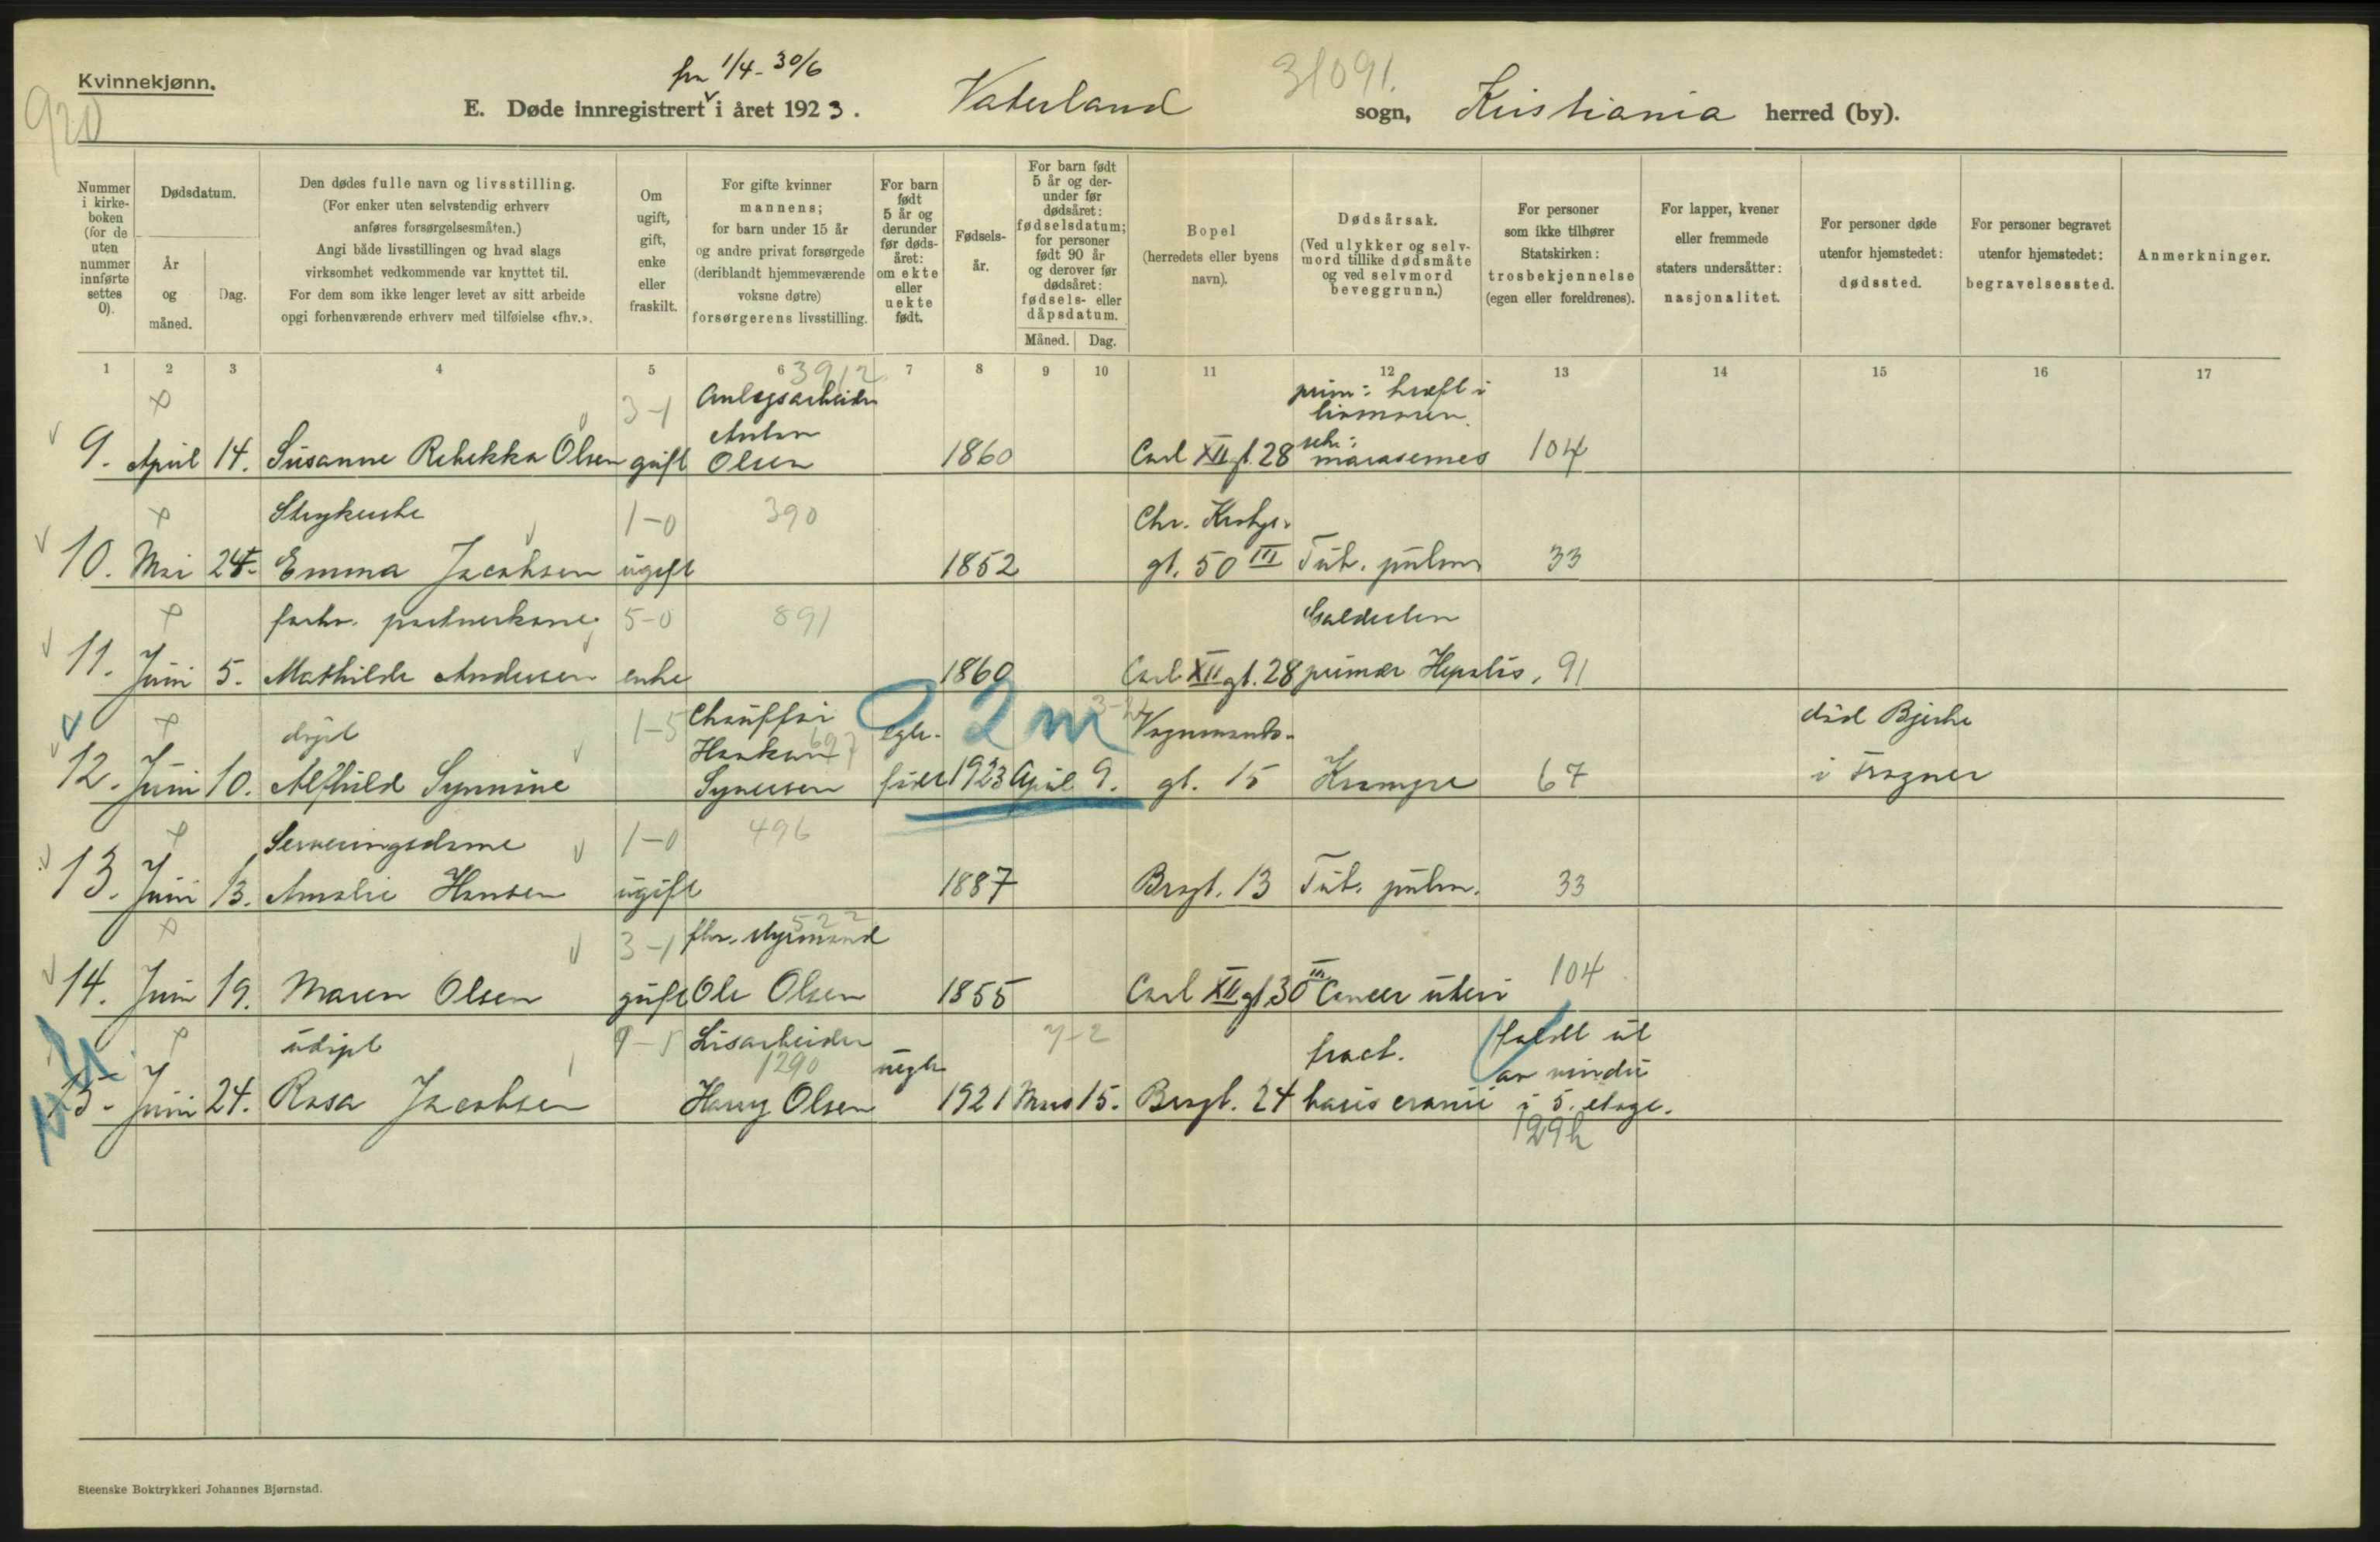 Kvinnekjønn.
920
fra 1/4 - 30/6
31091.
E. Døde innregistrert i året 1923. Vaterland sogn, Kristiania herred (by).
Nummer i kirkeboken (for de uten nummer innførte settes 0).
Dødsdatum.
År og måned.
Dag.
Den dødes fulle navn og livsstilling.
(For enker uten selvstendig erhverv
anføres forsørgelsesmåten.)
Angi både livsstillingen og hvad slags
virksomhet vedkommende var knyttet til.
For dem som ikke lenger levet av sitt arbeide
opgi forhenværende erhverv med tilføielse «fhv.».
Om
ugift,
gift,
enke
eller
fraskilt.
For gifte kvinner
mannens;
for barn under 15 år
og andre privat forsørgede
(deriblandt hjemmeværende
voksne døtre)
forsørgerens livsstilling.
For barn
født
5 år og
derunder
før døds-
året:
om ekte
eller
uekte
født.
Fødsels-
år.
For barn født
5 år og der-
under før
dødsåret:
fødselsdatum;
for personer
født 90 år
og derover før
dødsåret:
fødsels- eller
dåpsdatum.
Måned. Dag.
Bopel
(herredets eller byens
navn).
Dødsårsak.
(Ved ulykker og selv-
mord tillike dødsmåte
og ved selvmord
beveggrunn.)
For personer
som ikke tilhører
Statskirken:
trosbekjennelse
(egen eller foreldrenes).
For lapper, kvener
eller fremmede
staters undersåtter:
nasjonalitet.
For personer døde
utenfor hjemstedet:
dødssted.
For personer begravet
utenfor hjemstedet:
begravelsessted.
Anmerkninger.
1 2 3 4 5 6 7 8 9 10 11 12 13 14 15 16 17
3-1 3912 Anlægsarbeider prim: kræft i
livmoren.
Anton sek:
9. April 14. Susanne Rebekka Olsen gift Olsen 1860 Carl XII gt. 28 marasmus 104
Strykerske 1-0 390 Chr. Krohgs-
10. Mai 24. Emma Jacobsen ugift 1852 gt. 50 III Tub. pulm. 33
forhv. portnerkone 5-0 891 Galdesten
11. Juni 5. Mathilde Andersen enke 1860 Carl XII gt. 28 primær Hepatis, 91
døpt 1-5 Chauffør 697 egte- 2 m Vognmands- død Bjerke
Haakon
12. Juni 10. Alfhild Synnøve Syversen født 1923 April 9. gt. 15 Krampe 67 i Frogner
Serveringsdame 1-0 496
13. Juni 13. Amalie Hansen ugift 1887 Brogt. 13 Tub. pulm. 33
3-1 fhv. Myrmand 522
14. Juni 19. Maren Olsen gift Ole Olsen 1855 Carl XII gt. 30 III Cancer uteri 104
udøpt Lisarbeider 1290 uegte 7-2 fract. faldt ut
av vindu
15. Juni 24. Rosa Jacobsen Harry Olsen 1921 Mars 15. Brogt. 24 basis cranii i 5. etage.
129h
Steenske Boktrykkeri Johannes Bjørnstad.